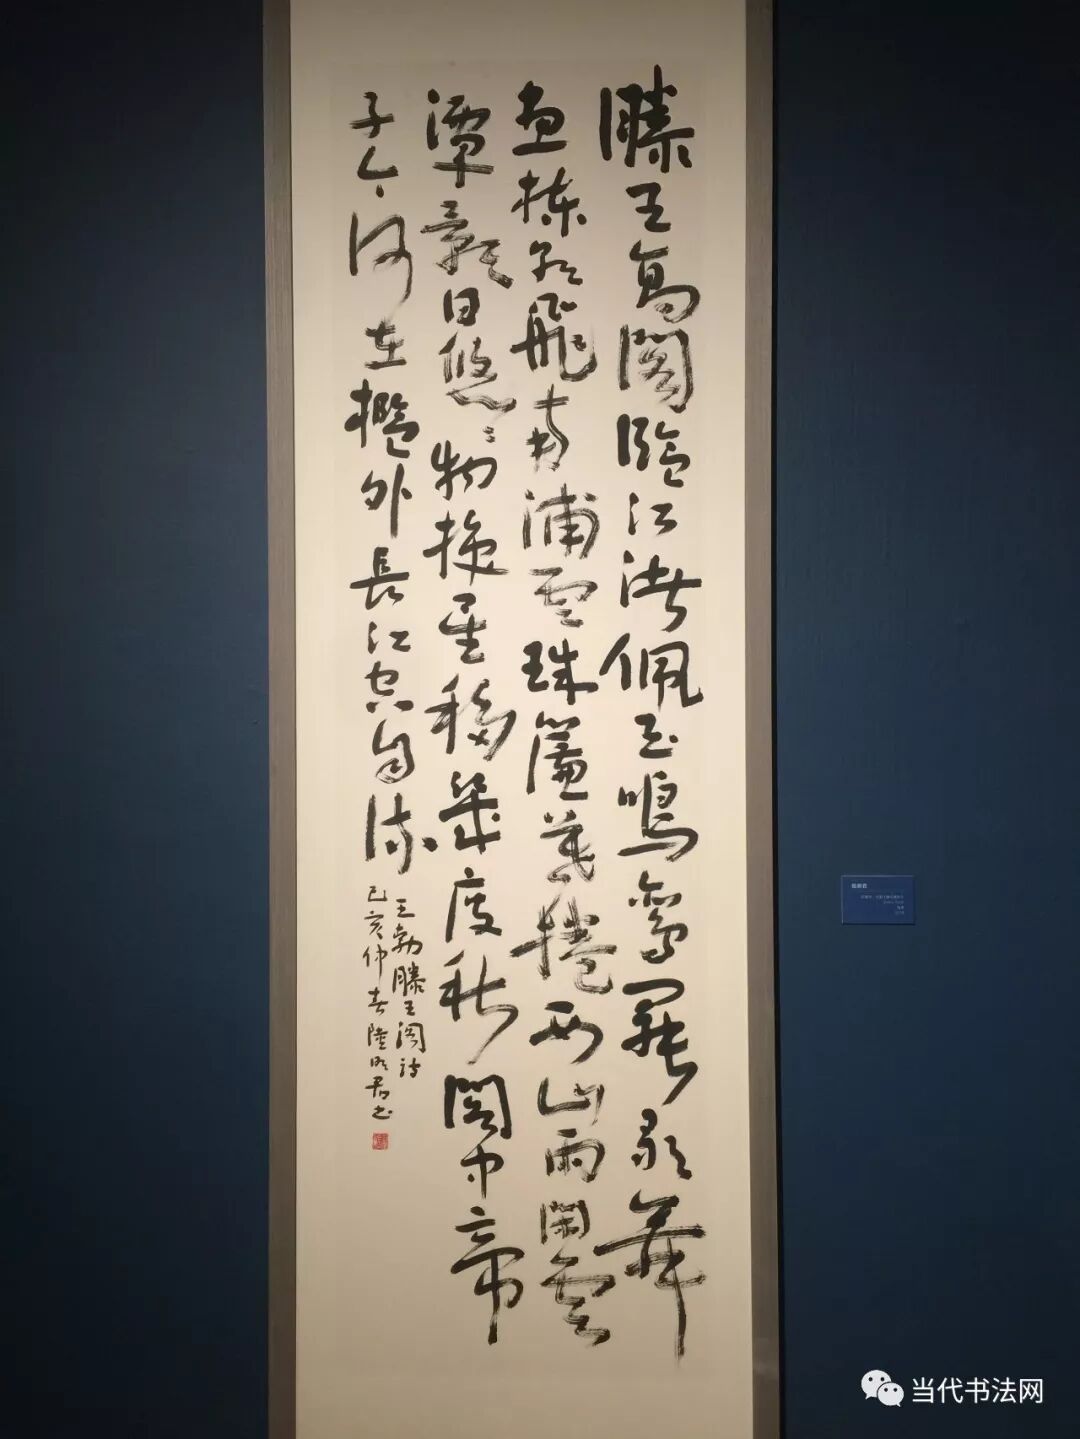 滕王高閣臨江渚佩玉鳴鸞罷歌舞
畫棟朝飛南浦雲珠簾暮捲西山雨閑雲
潭影日悠〻物換星移幾度秋閣中帝
子今何在檻外長江空自流
王勃滕王閣詩
己亥仲春陸明君書
当代书法网